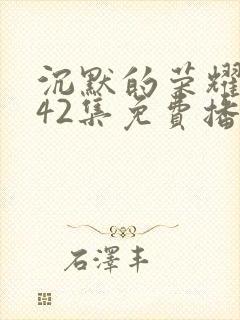 沉默的荣耀
42集免費播
石澤丰